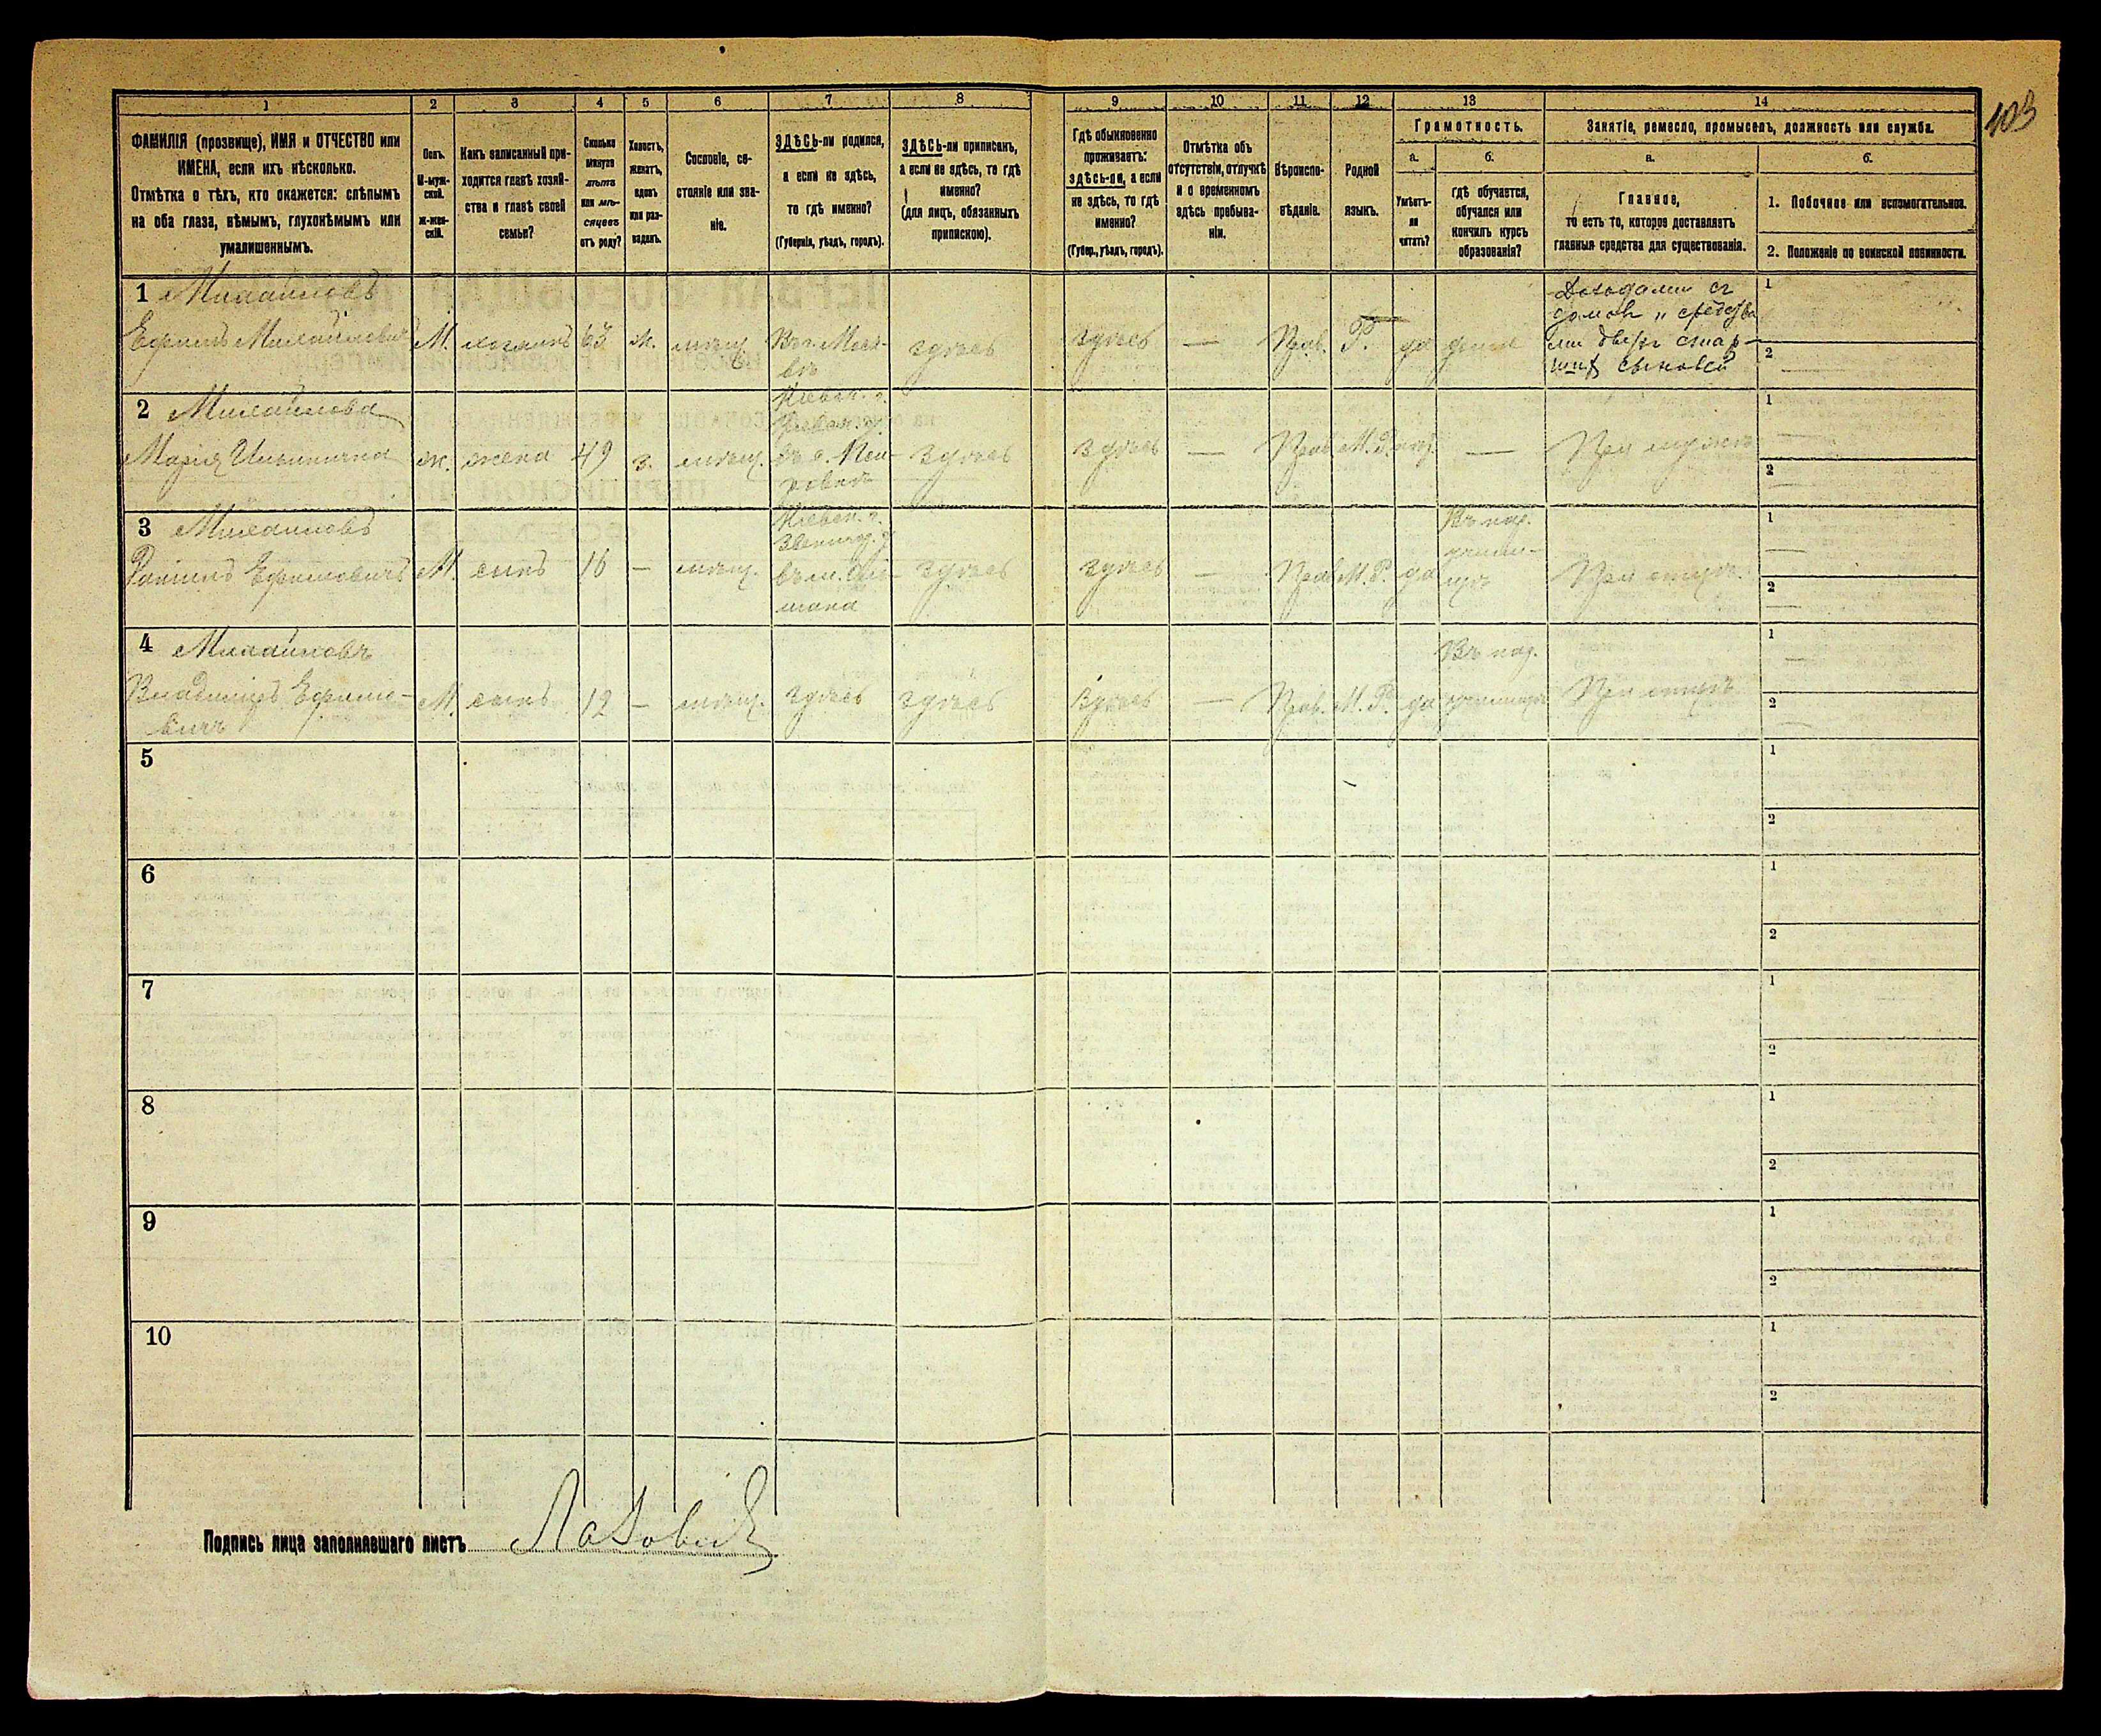 103
1 2 3 4 5 6 7 8 9 10 11 12 13 14
ФАМИЛІЯ (прозвище), ИМЯ и ОТЧЕСТВО или
ИМЕНА, если ихъ нѣсколько.
Отмѣтка о тѣхъ, кто окажется: слѣпымъ
на оба глаза, нѣмымъ, глухонѣмымъ или
умалишеннымъ.
Полъ.
М-муж-
ской.
Ж-жен-
скій.
Какъ записанный при-
ходится главѣ хозяй-
ства и главѣ своей
семьи?
Сколько
минуло
лѣтъ
или мѣ-
сяцевъ
отъ роду?
Холостъ,
женатъ,
вдовъ
или раз-
веденъ.
Сословіе, со-
стояніе или зва-
ніе.
ЗДѢСЬ-ли родился,
а если не здѣсь,
то гдѣ именно?
(Губернія, уѣздъ, городъ).
ЗДѢСЬ-ли приписанъ,
а если не здѣсь, то гдѣ
именно?
(для лицъ, обязанныхъ
припискою).
Гдѣ обыкновенно
проживаетъ:
здѣсь-ли, а если
не здѣсь, то гдѣ
именно?
(Губер., уѣздъ, городъ).
Отмѣтка объ
отсутствіи, отлучкѣ
и о временномъ
здѣсь пребыва-
ніи.
Вѣроиспо-
вѣданіе.
Родной
языкъ.
Грамотность.
а. б.
Умѣетъ-
ли
читать?
гдѣ обучается,
обучался или
кончилъ курсъ
образованія?
Занятіе, ремесло, промыселъ, должность или служба.
а. б.
Главное,
то есть то, которое доставляетъ
главныя средства для существованія.
1. Побочное или вспомогательное.
2. Положеніе по воинской повинности.
1 Михайловъ
Ефимъ Михайловичъ М. хозяинъ 63 ж. мѣщ. Въ г. Моск-
вѣ
здѣсь здѣсь — Прав. Р. да дома
Доходами съ
домовъ и средства
ми двухъ стар-
шихъ сыновей
1
2
2 Михайлова
Марія Ильинична ж. жена 49 з. мѣщ.
Кіевск. г.
здѣсь здѣсь — Прав. М. Р. нѣт — При мужѣ
1
2
3 Михайловъ
Ефимовичъ М. сынъ 16 — мѣщ.
Кіевск. г.
Звенигор. у.
здѣсь здѣсь — Прав. М. Р. да
Въ нар.
учили-
щѣ
При отцѣ
1
2
4 Михайловъ
Владиміръ Ефимо-
вичъ
М. сынъ 12 — мѣщ. здѣсь здѣсь здѣсь — Прав. М. Р. да
Въ нар.
училищѣ
При отцѣ
1
2
5 1
2
6 1
2
7 1
2
8 1
2
9 1
2
10 1
2
Подпись лица заполнявшаго листъ